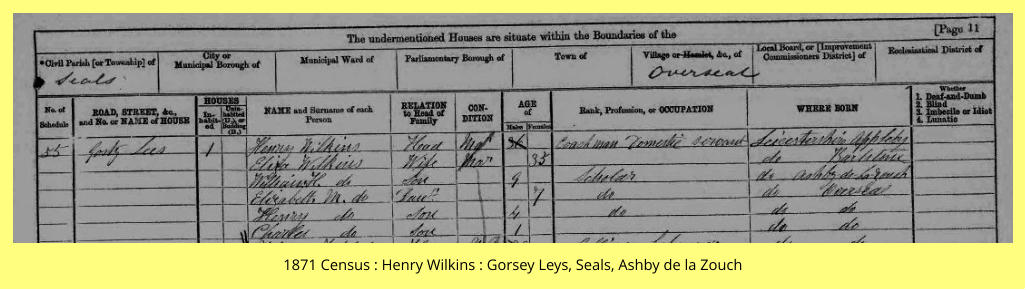 The undermentioned Houses are situate within the Boundaries of the [Page 11
*Civil Parish [or Township] of
Seals
City or Municipal Borough of
Municipal Ward of
Parliamentary Borough of
Town of
Village or Hamlet, &c., of
Overseal
Local Board, or [Improvement Commissioners District] of
Ecclesiastical District of
No. of Schedule
ROAD, STREET, &c., and No. or NAME of HOUSE
HOUSES
In-habit-ed
Unin-habited (U.), or Building (B.)
NAME and Surname of each Person
RELATION to Head of Family
CON-DITION
AGE of
Males Females
Rank, Profession, or OCCUPATION
WHERE BORN
Whether
1. Deaf-and-Dumb
2. Blind
3. Imbecile or Idiot
4. Lunatic
55 Lees 1 Henry Wilkins Head Mar Coachman Domestic Servant Leicestershire Appleby
Eliza Wilkins Wife Mar 35 do
William H. do Son 9 Scholar do Ashby de la Zouch
Elizabeth M. do Daur 7 do do Overseal
Henry do Son 4 do do do
Charles do Son 1 do do
1871 Census : Henry Wilkins : Gorsey Leys, Seals, Ashby de la Zouch